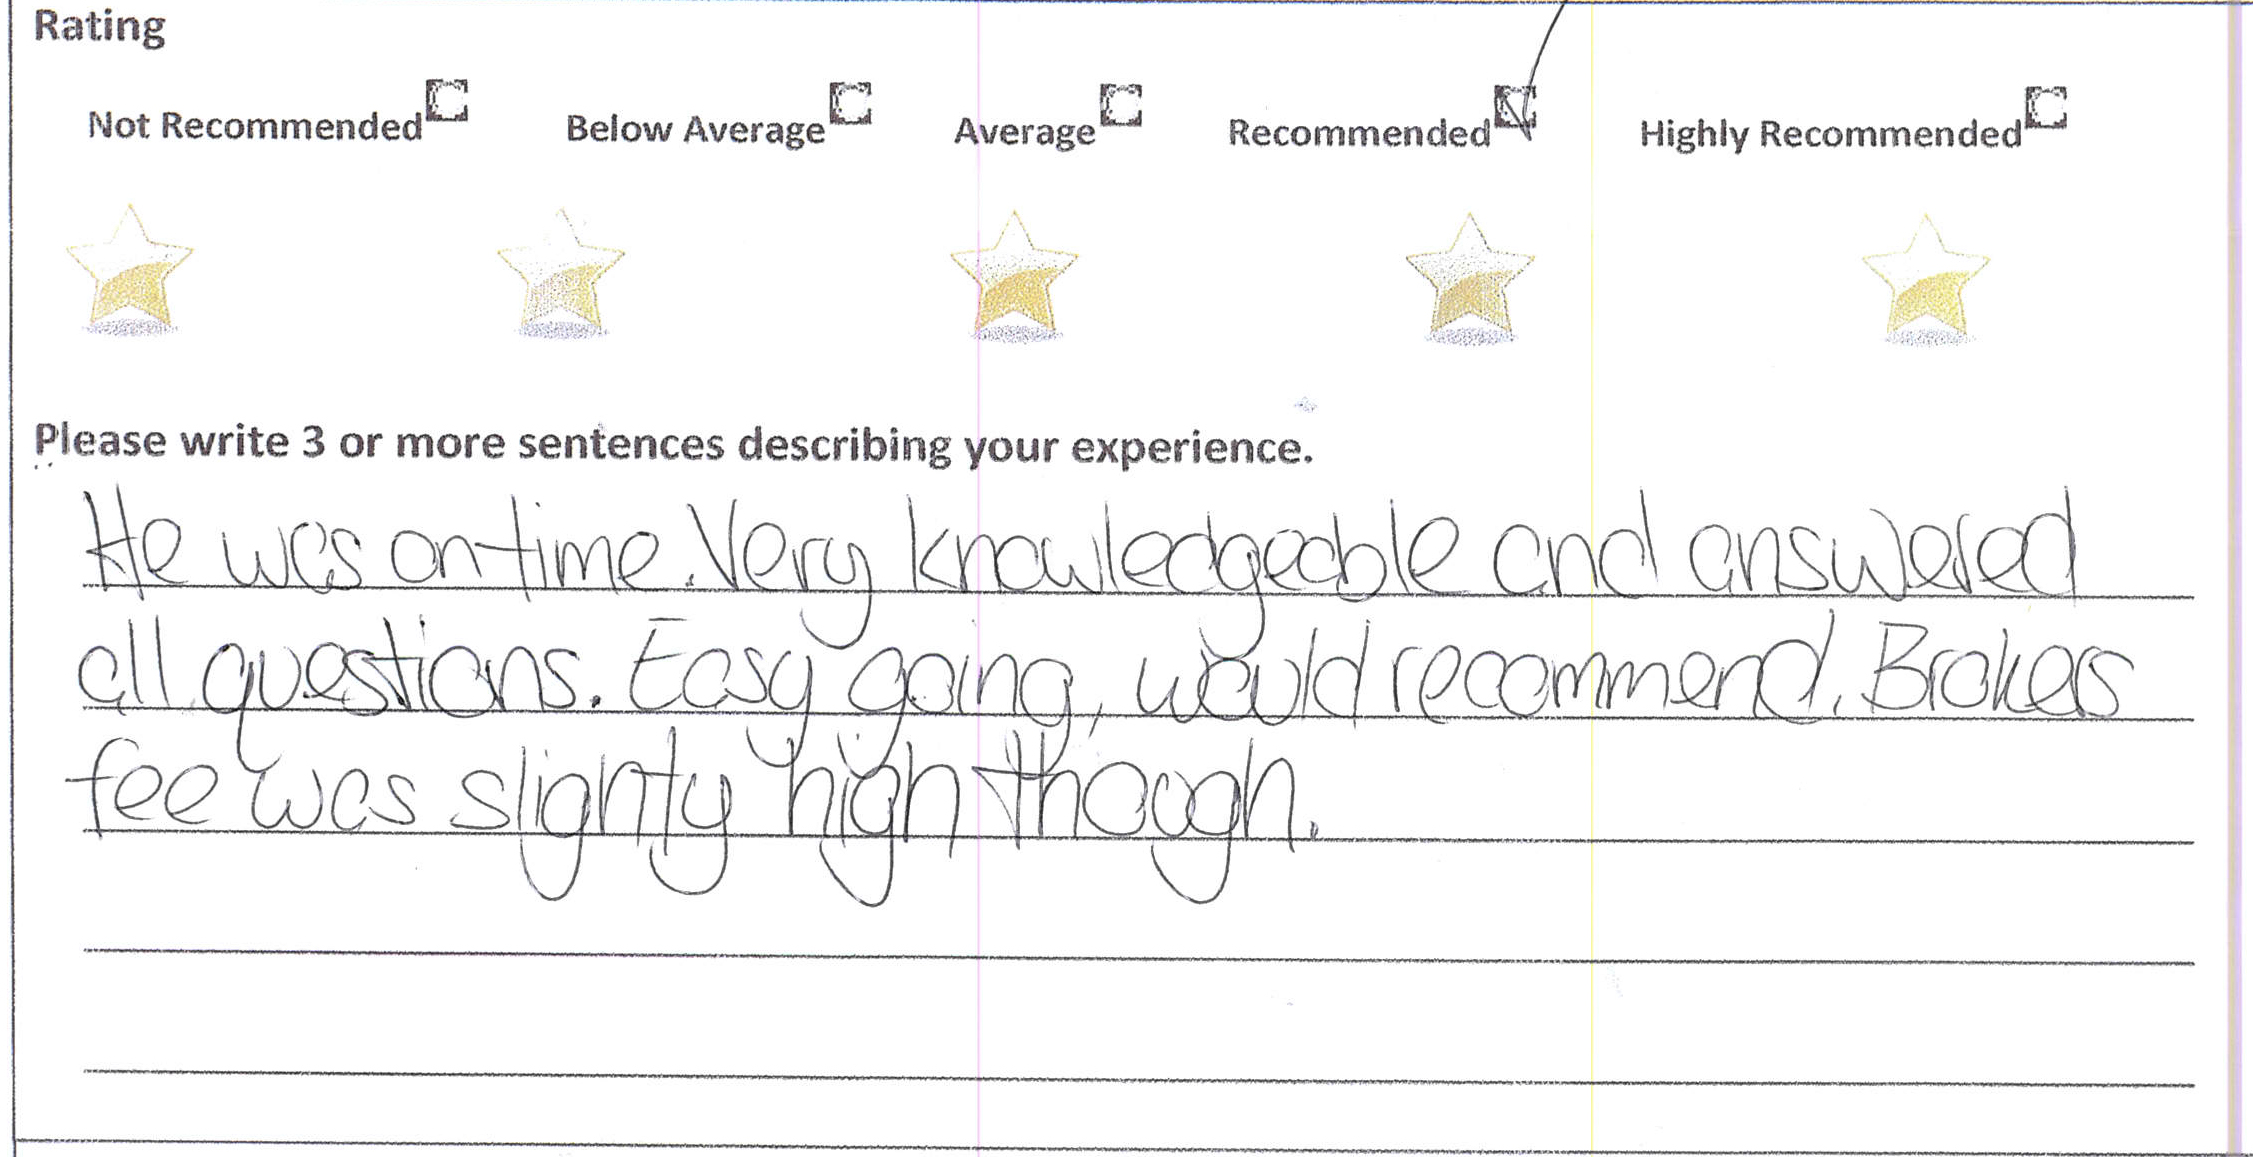 Rating
Not Recommended Below Average Average Recommended Highly Recommended
Please write 3 or more sentences describing your experience.
He was on time. Very knowledgeable and answered
all questions. Easy going, would recommend. Brokers
fee was slighty high though.